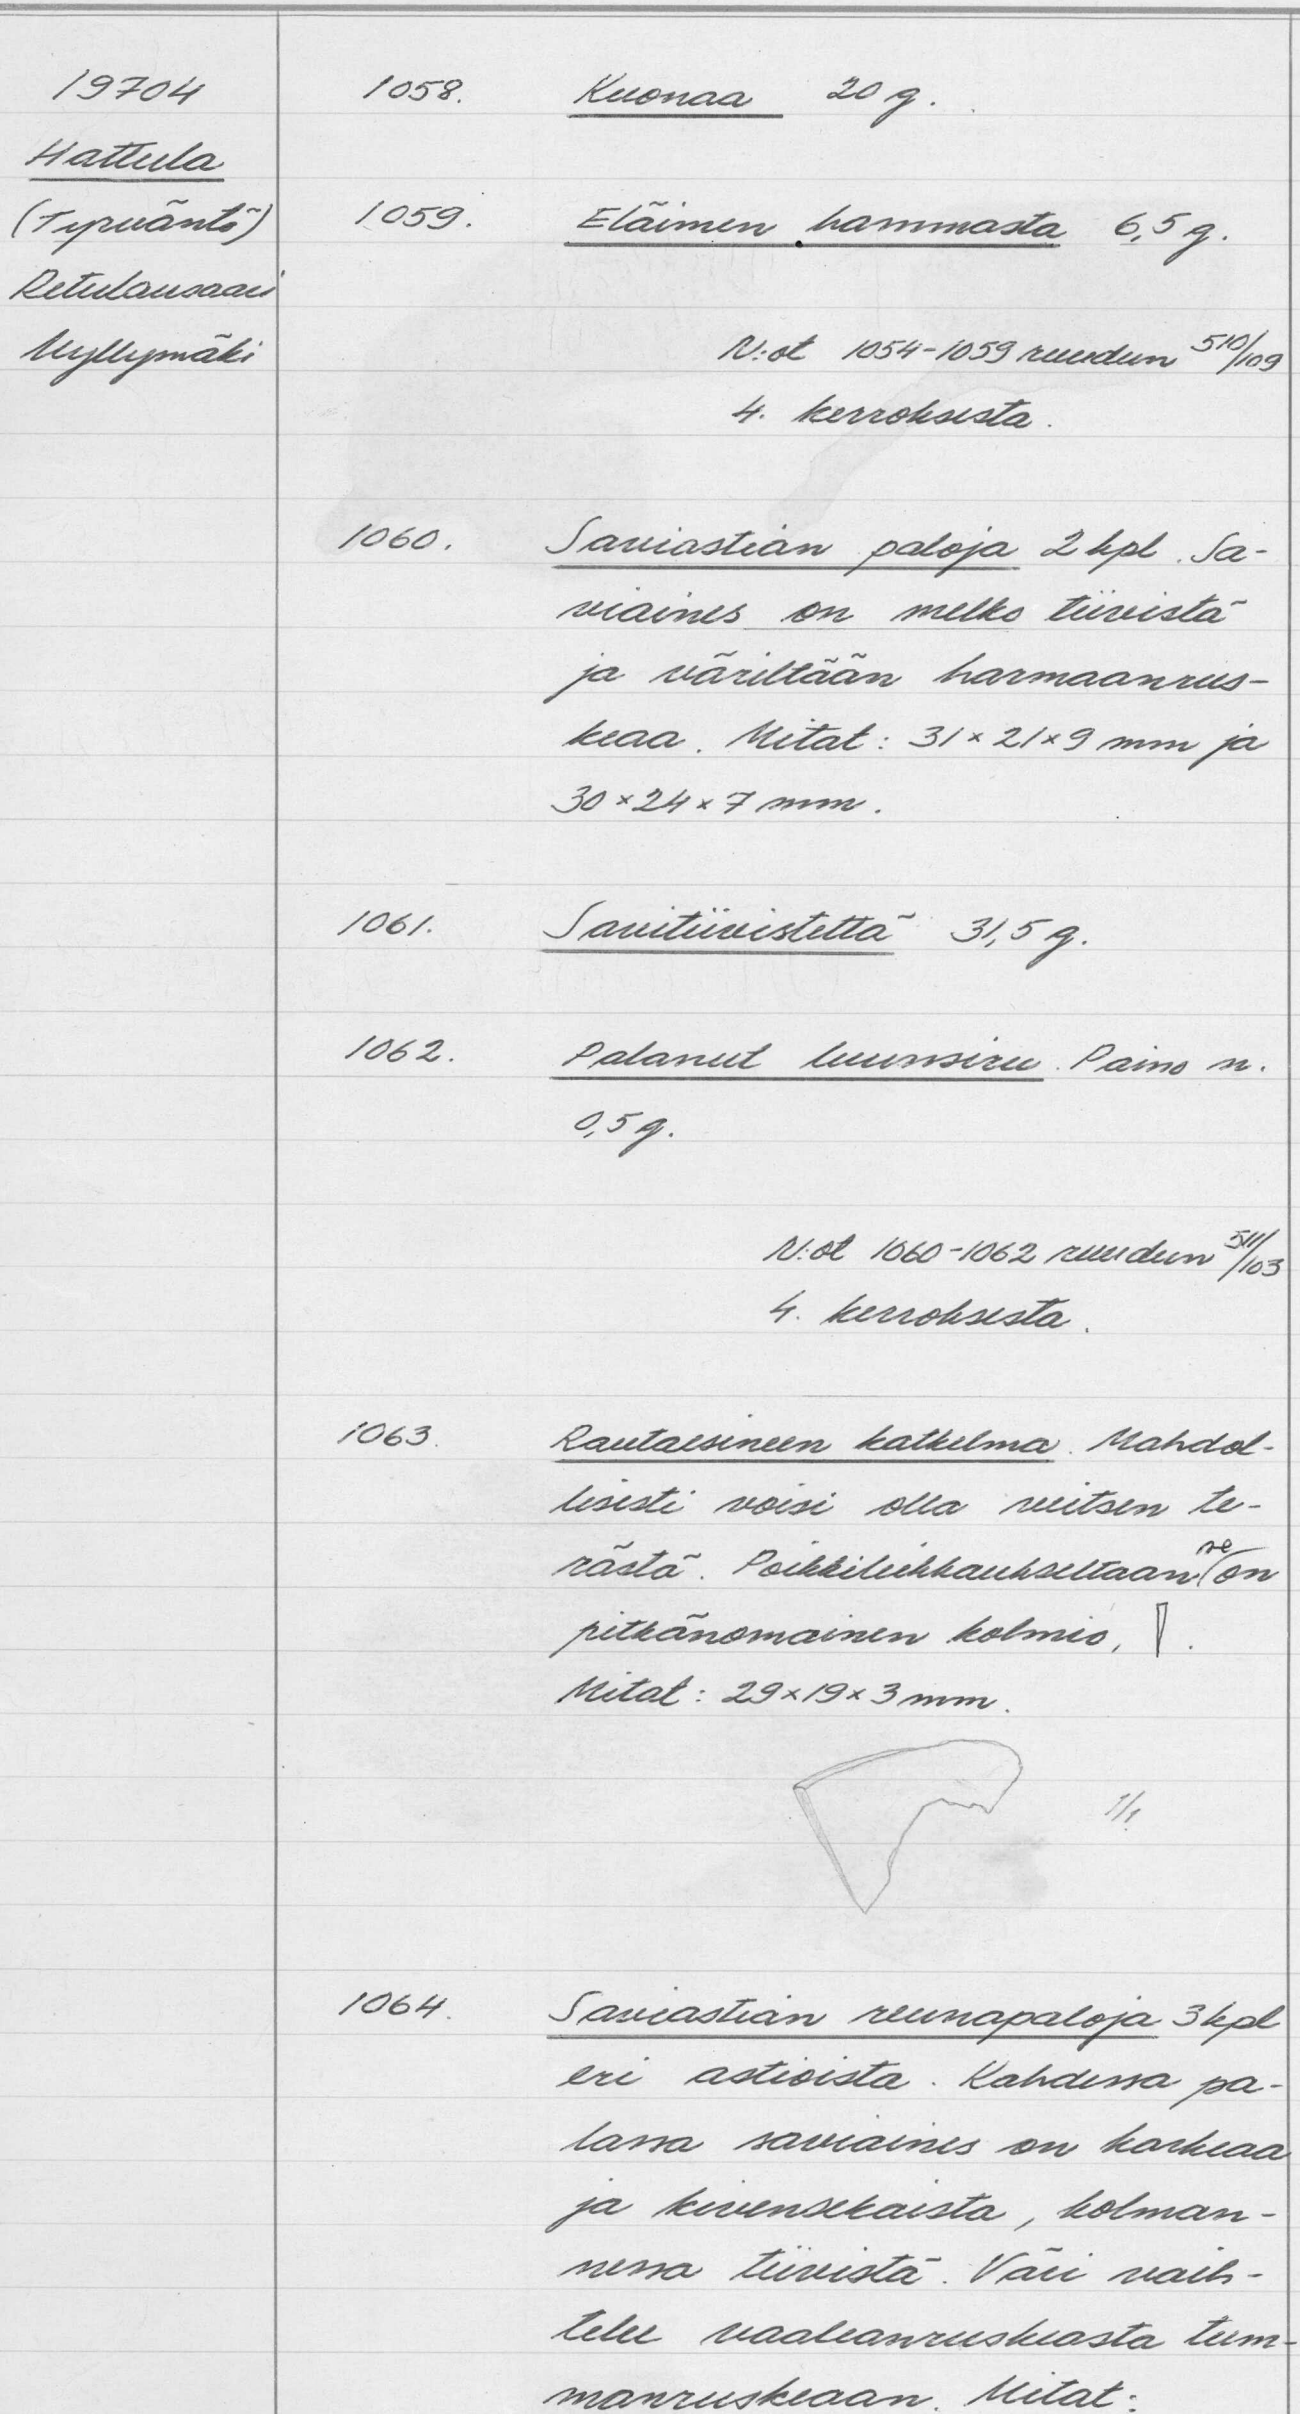 19704
Hattula
(Tyrväntö)
Retulansaari
Myllymäki
1058. Kuonaa 20 g.
1059. Eläimen hammasta 6,5 g.
N:ot 1054-1059 ruudun 510/109
4. kerroksesta.
1060. Saviastian paloja 2 kpl. Sa-
viaines on melko tiivistä
ja väriltään harmaanrus-
keaa. Mitat: 31×21×9 mm ja
30×24×7 mm.
1061. Savitiivistettä 31,5 g.
1062. Palanut luunsiru. Paino n.
0,5 g.
N:ot 1060-1062 ruudun 511/103
4. kerroksesta.
1063. Rautaesineen katkelma. Mahdol-
lisesti voisi olla veitsen te-
rästä. Poikkileikkaukseltaan se on
pitkänomainen kolmio, .
Mitat: 29×19×3 mm.
1/1
1064. Saviastian reunapaloja 3 kpl
eri astioista. Kahdessa pa-
lassa saviaines on karkeaa
ja kivensekaista, kolman-
nessa tiivistä. Väri vaih-
telee vaaleanruskeasta tum-
manruskeaan. Mitat: